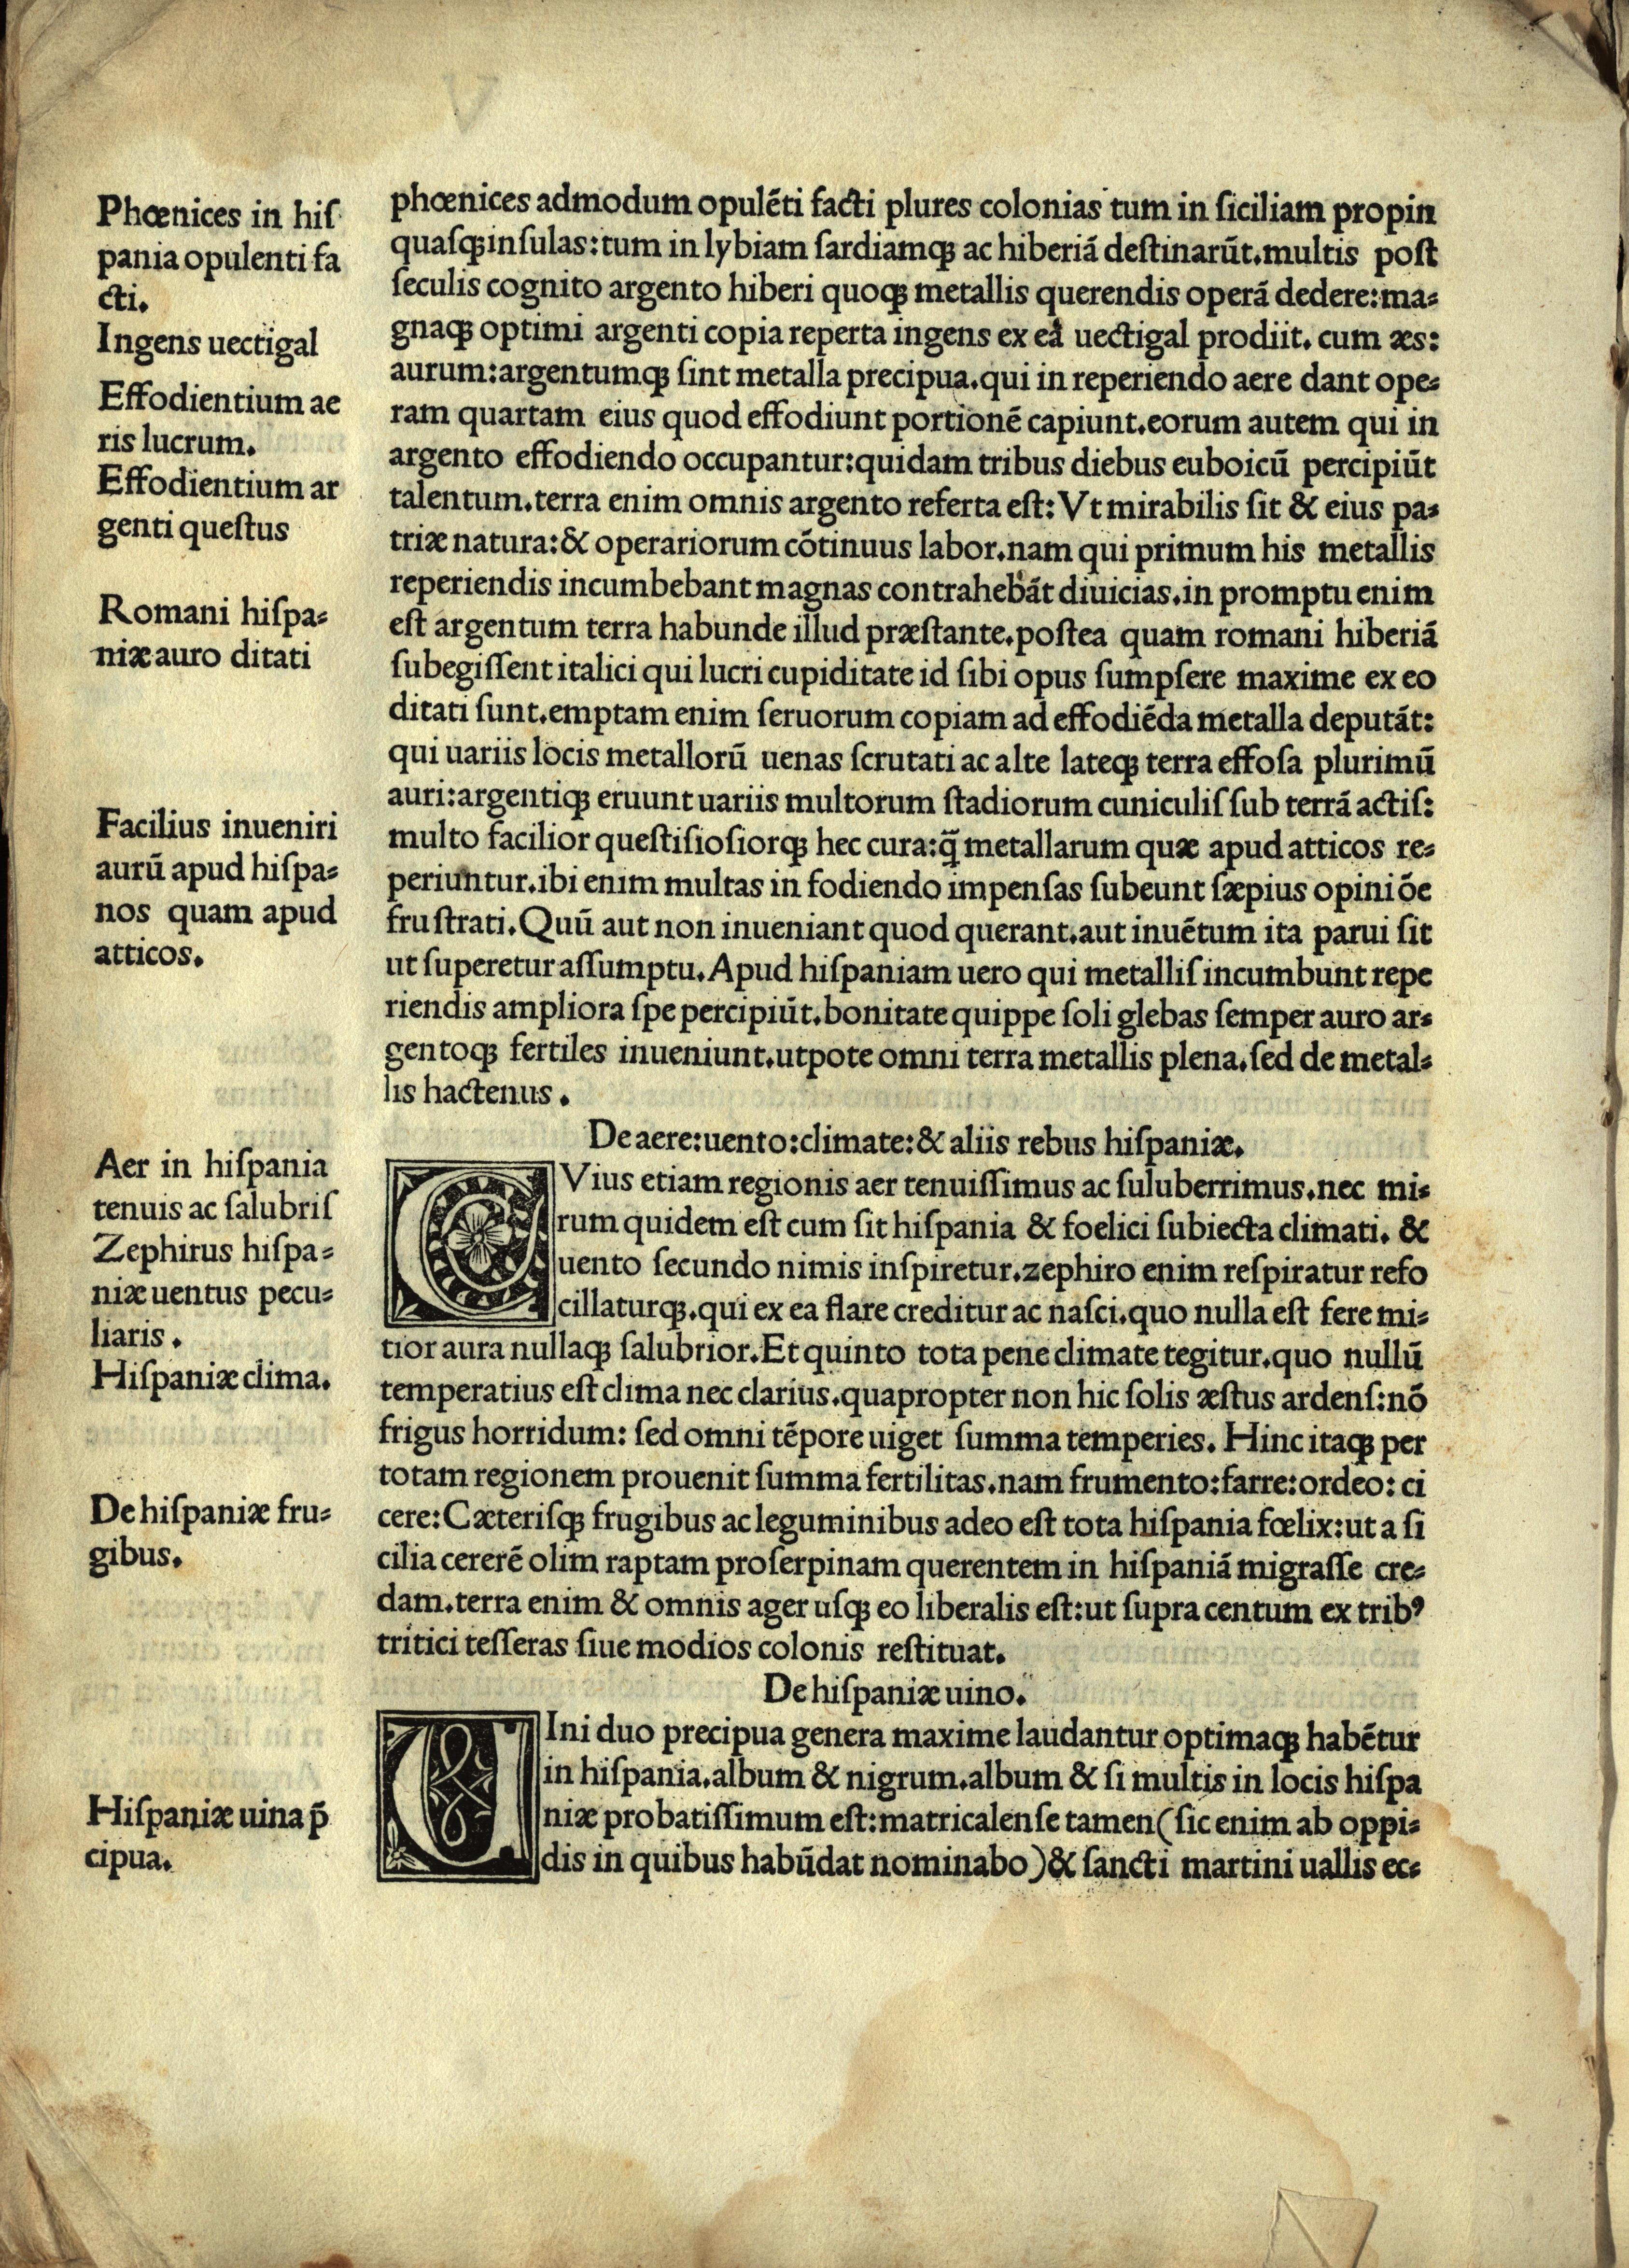 Phœnices in hiſ
pania opulenti fa
cti.
Ingens uectigal
Effodientium ae
ris lucrum.
Effodientium ar
genti queſtus
Romani hiſpa-
niæ auro ditati
Facilius inueniri
aurū apud hiſpa-
nos quam apud
atticos.
Aer in hiſpania
tenuis ac ſalubriſ
Zephirus hiſpa-
niæ uentus pecu-
liaris.
Hiſpaniæ clima.
De hiſpaniæ fru-
gibus.
Hiſpaniæ uina p̄
cipua.
phœnices admodum opulēti facti plures colonias tum in ſiciliam propin
quaſqꝫ inſulas: tum in lybiam ſardiamqꝫ ac hiberiā deſtinarūt. multis poſt
ſeculis cognito argento hiberi quoqꝫ metallis querendis operā dedere: ma-
gnaqꝫ optimi argenti copia reperta ingens ex ea uectigal prodiit. cum æs:
aurum: argentumqꝫ ſint metalla precipua. qui in reperiendo aere dant ope-
ram quartam eius quod effodiunt portionē capiunt. eorum autem qui in
argento effodiendo occupantur: quidam tribus diebus euboicū percipiūt
talentum. terra enim omnis argento referta eſt: Vt mirabilis ſit & eius pa-
triæ natura: & operariorum cōtinuus labor. nam qui primum his metallis
reperiendis incumbebant magnas contrahebāt diuicias. in promptu enim
eſt argentum terra habunde illud præſtante. poſtea quam romani hiberiā
ſubegiſſent italici qui lucri cupiditate id ſibi opus ſumpſere maxime ex eo
ditati ſunt. emptam enim ſeruorum copiam ad effodiēda metalla deputāt:
qui uariis locis metallorū uenas ſcrutati ac alte lateqꝫ terra effoſa plurimū
auri: argentiqꝫ eruunt uariis multorum ſtadiorum cuniculiſ ſub terrā actiſ:
multo facilior queſtiſioſiorqꝫ hec cura: q̄ metallarum quæ apud atticos re-
periuntur. ibi enim multas in fodiendo impenſas ſubeunt ſæpius opiniōe
fruſtrati. Quū aut non inueniant quod querant. aut inuētum ita parui ſit
ut ſuperetur aſſumptu. Apud hiſpaniam uero qui metalliſ incumbunt repe
riendis ampliora ſpe percipiūt. bonitate quippe ſoli glebas ſemper auro ar-
gentoqꝫ fertiles inueniunt. utpote omni terra metallis plena. ſed de metal-
lis hactenus.
De aere: uento: climate: & aliis rebus hiſpaniæ.
CVius etiam regionis aer tenuiſſimus ac ſuluberrimus. nec mi-
rum quidem eſt cum ſit hiſpania & foelici ſubiecta climati. &
uento ſecundo nimis inſpiretur. zephiro enim reſpiratur refo
cillaturqꝫ. qui ex ea flare creditur ac naſci. quo nulla eſt fere mi-
tior aura nullaqꝫ ſalubrior. Et quinto tota pene climate tegitur. quo nullū
temperatius eſt clima nec clarius. quapropter non hic ſolis æſtus ardenſ: nō
frigus horridum: ſed omni tēpore uiget ſumma temperies. Hinc itaqꝫ per
totam regionem prouenit ſumma fertilitas. nam frumento: farre: ordeo: ci
cere: Cæteriſqꝫ frugibus ac leguminibus adeo eſt tota hiſpania fœlix: ut a ſi
cilia cererē olim raptam proſerpinam querentem in hiſpaniā migraſſe cre-
dam. terra enim & omnis ager uſqꝫ eo liberalis eſt: ut ſupra centum ex tribꝰ
tritici teſſeras ſiue modios colonis reſtituat.
De hiſpaniæ uino.
UIni duo precipua genera maxime laudantur optimaqꝫ habētur
in hiſpania. album & nigrum. album & ſi multis in locis hiſpa
niæ probatiſſimum eſt: matricalenſe tamen (ſic enim ab oppi-
dis in quibus habūdat nominabo) & ſancti martini uallis ec-